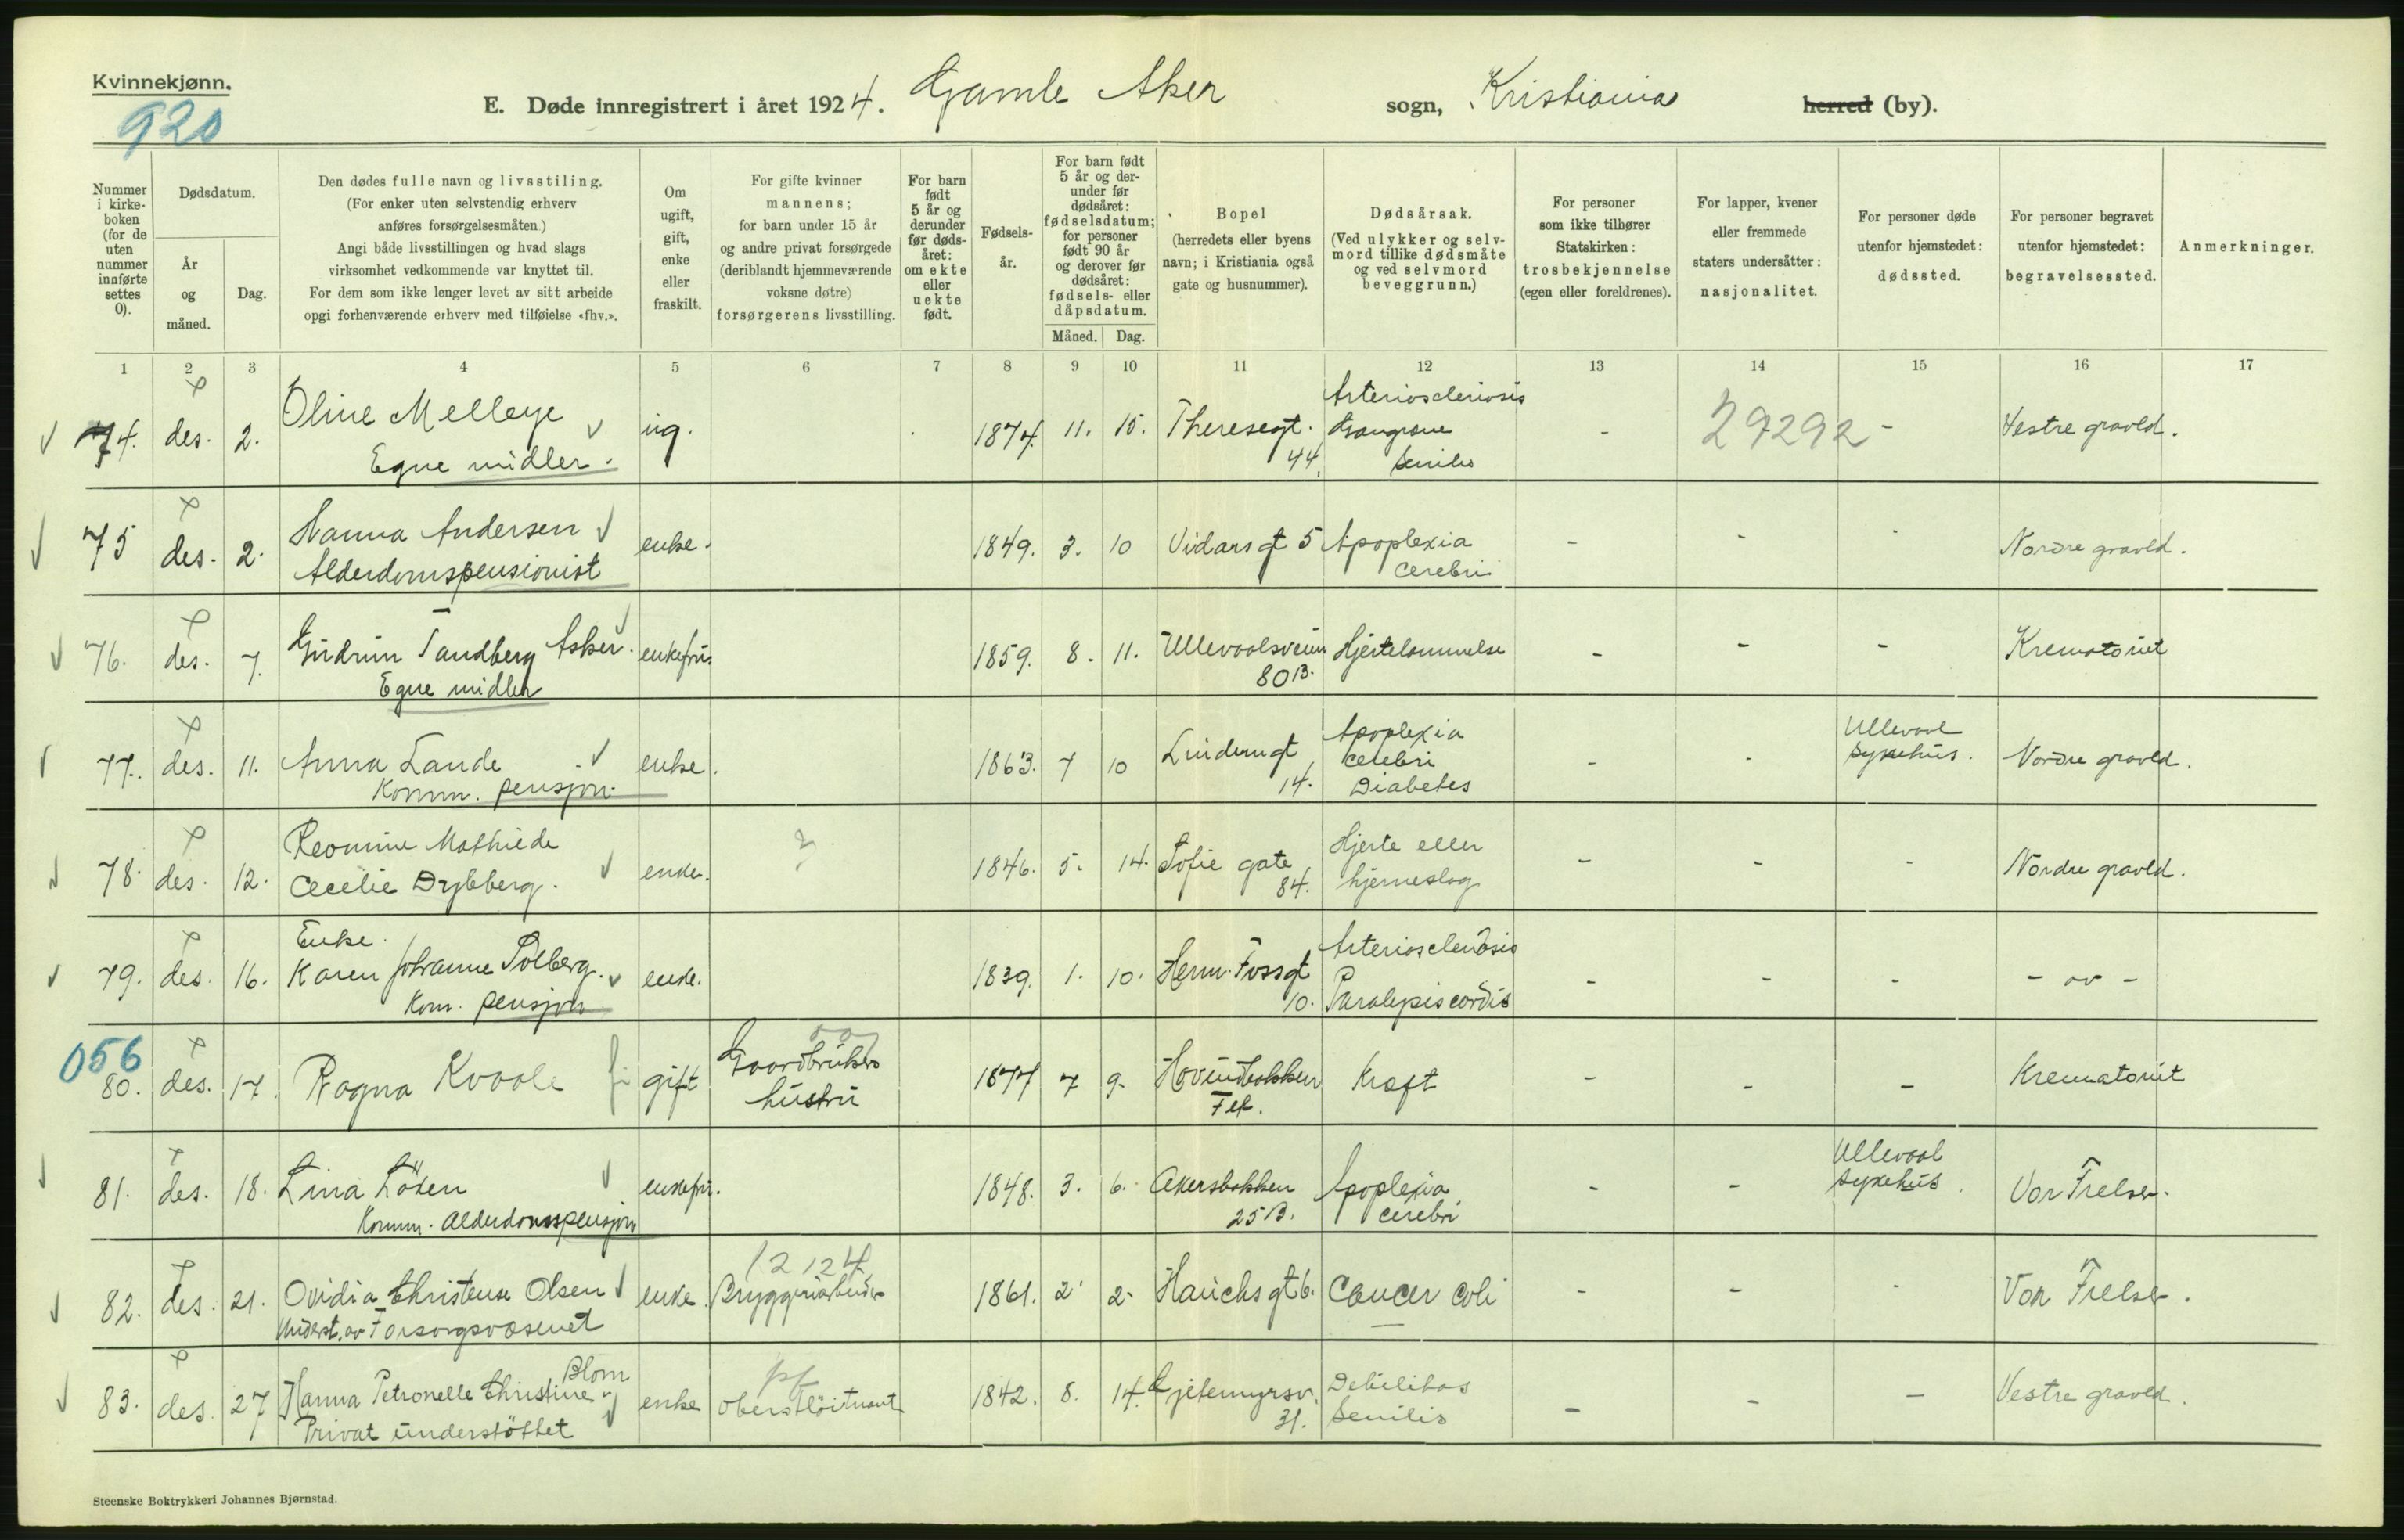 Kvinnekjønn.
920
E. Døde innregistrert i året 1924. Gamle Aker sogn, Kristiania herred (by).
Nummer i kirkeboken (for de uten nummer innførte settes 0).
Dødsdatum.
År og måned.
Dag.
Den dødes fulle navn og livsstiling.
(For enker uten selvstendig erhverv
anføres forsørgelsesmåten.)
Angi både livsstillingen og hvad slags
virksomhet vedkommende var knyttet til.
For dem som ikke lenger levet av sitt arbeide
opgi forhenværende erhverv med tilføielse «fhv.».
Om ugift, gift, enke eller fraskilt.
For gifte kvinner
mannens;
for barn under 15 år
og andre privat forsørgede
(deriblandt hjemmeværende
voksne døtre)
forsørgerens livsstilling.
For barn født 5 år og derunder før dødsåret: om ekte eller uekte født.
Fødselsår.
For barn født 5 år og derunder før dødsåret: fødselsdatum; for personer født 90 år og derover før dødsåret: fødsels- eller dåpsdatum.
Måned. Dag.
Bopel
(herredets eller byens
navn; i Kristiania også
gate og husnummer).
Dødsårsak.
(Ved ulykker og selvmord tillike dødsmåte
og ved selvmord
beveggrunn.)
For personer
som ikke tilhører
Statskirken:
trosbekjennelse
(egen eller foreldrenes).
For lapper, kvener
eller fremmede
staters undersåtter:
nasjonalitet.
For personer døde
utenfor hjemstedet:
dødssted.
For personer begravet
utenfor hjemstedet:
begravelsessted.
Anmerkninger.
1 2 3 4 5 6 7 8 9 10 11 12 13 14 15 16 17
74. des. 2. Oline Melleye ug. 1874. 11. 15. Theresegt. Arterioscleriosis - 29292 - Vestre gravld.
Egne midler. 44. Gangræne
senilis
75 des. 2. Hanna Andersen enke. 1849. 3. 10 Vidarsgt 5 Apoplexia - - - Nordre gravld.
Alderdomspensionist cerebri
76. des. 7. Gudrun Tandberg Asker. enkefru. 1859. 8. 11. Ullevaalsveien Hjertelammelse - - - Krematoriet
Egne midler 80B.
77. des. 11. Anna Lande enke. 1863. 7 10 Linderngt Apoplexia - - Ullevaal Nordre gravld.
Komm. pensjon. 14. cerebri sykehus.
Diabetes
78. des. 12. Reomine Mathilde enke. 1846. 5. 14. Sofie gate Hjerte eller - - - Nordre gravld.
Cecelie Dybberg. 84. hjerneslag
Enke.
79. des. 16. Karen Johanne Solberg. enke. 1839. 1. 10. Herm. Fossgt Arteriosclerosis - - - - av -
Kom. pensjon 10. Paralysis cordis
056
80. des. 17. Ragna Kvaale gift Gaardbrukers 1877 7 9. Hovindbakken Kræft - - - Krematoriet
hustru
81. des. 18. Lina Lösen enkefru. 1848. 3. 6. Akersbakken Apoplexia - - Ullevaal Vor Frelser.
Komm. Alderdomspensjon 25B. cerebri sykehus.
12124
82. des. 21. Ovidia Christense Olsen enke Bryggeriarbeider 1861. 2. 2. Hauchsgt 6. Cancer coli - - - Vor Frelser.
Underst. av Forsorgsvæsenet
83. des. 27 Hanna Petronelle Christine Blom enke oberstlöitnant 1842. 8. 14. Gjetemyrsv. Debilitas - - - Vestre gravld.
Privat understöttet 31. senilis
Steenske Boktrykkeri Johannes Bjørnstad.